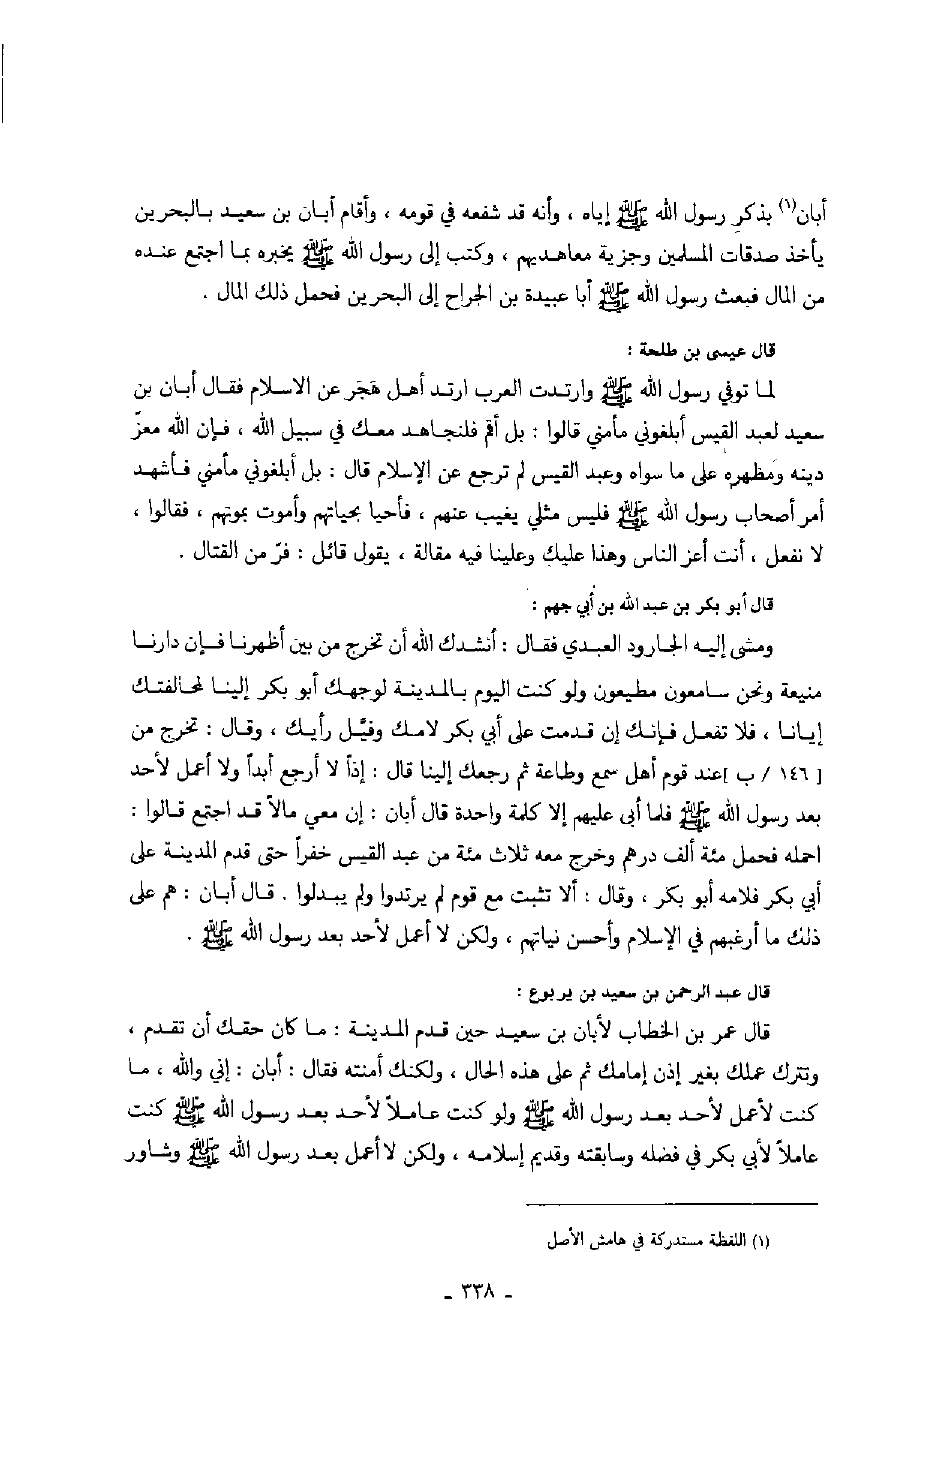 أبان(١) بذكر رسول الله ﷺ إياه ، وأنه قد شفعه في قومه ، وأقام أبان بن سعيد بالبحرين
يأخذ صدقات المسلمين وجزية معاهديهم ، وكتب إلى رسول الله ﷺ يخبره بما اجتمع عنده
من المال فبعث رسول الله ﷺ أبا عبيدة بن الجراح إلى البحرين فحمل ذلك المال .
قال عيسى بن طلحة :
لما توفي رسول الله ﷺ وارتدت العرب ارتد أهل هَجَر عن الاسلام فقال أبان بن
سعيد لعبد القيس أبلغوني مأمني قالوا : بل أقم فلنجاهد معك في سبيل الله ، فإن الله معزّ
دينه ومظهره على ما سواه وعبد القيس لم ترجع عن الإسلام قال : بل أبلغوني مأمني فأشهد
أمر أصحاب رسول الله ﷺ فليس مثلي يغيب عنهم ، فأحيا بحياتهم وأموت بموتهم ، فقالوا ،
لا نفعل ، أنت أعز الناس وهذا عليك وعلينا فيه مقالة ، يقول قائل : فرّ من القتال .
قال أبو بكر بن عبد الله بن أبي جهم :
ومشى إليه الجارود العبدي فقال : أنشدك الله أن تخرج من بين أظهرنا فإن دارنا
منيعة ونحن سامعون مطيعون ولو كنت اليوم بالمدينة لوجهك أبو بكر إلينا لمحالفتك
إيانا ، فلا تفعل فإنك إن قدمت على أبي بكر لامك وفيّل رأيك ، وقال : تخرج من
[ ١٤٦ / ب ]عند قوم أهل سمع وطاعة ثم رجعك إلينا قال : إذاً لا أرجع أبداً ولا أعمل لأحد
بعد رسول الله ﷺ فلما أبى عليهم إلا كلمة واحدة قال أبان : إن معي مالاً قد اجتمع قالوا :
احمله فحمل مئة ألف درهم وخرج معه ثلاث مئة من عبد القيس خفراً حتى قدم المدينة على
أبي بكر فلامه أبو بكر ، وقال : ألا تثبت مع قوم لم يرتدوا ولم يبدلوا . قال أبان : هم على
ذلك ما أرغبهم في الإسلام وأحسن نياتهم ، ولكن لا أعمل لأحد بعد رسول الله ﷺ .
قال عبد الرحمن بن سعيد بن يربوع :
قال عمر بن الخطاب لأبان بن سعيد حين قدم المدينة : ما كان حقك أن تقدم ،
وتترك عملك بغير إذن إمامك ثم على هذه الحال ، ولكنك أمنته فقال : أبان : إني والله ، ما
كنت لأعمل لأحد بعد رسول الله ﷺ ولو كنت عاملاً لأحد بعد رسول الله ﷺ كنت
عاملاً لأبي بكر في فضله وسابقته وقديم إسلامه ، ولكن لا أعمل بعد رسول الله ﷺ وشاور
(١) اللفظة مستدركة في هامش الأصل
- ٣٣٨ -